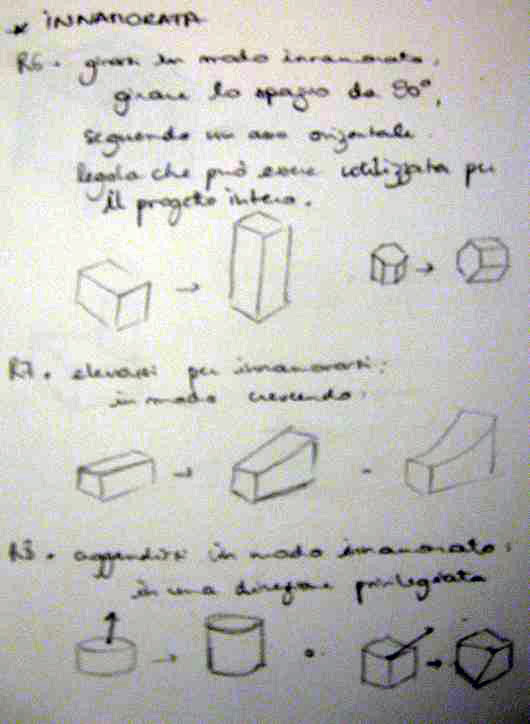 * INNAMORATA
R6. girarsi in modo innamorato:
girare lo spazio da 90°,
seguendo un asse orizzontale.
Regola che può essere utilizzata per
il progetto intero.
R7. elevarsi per innamorarsi:
in modo crescendo:
R8. in modo innamorato:
in una direzione privilegiata